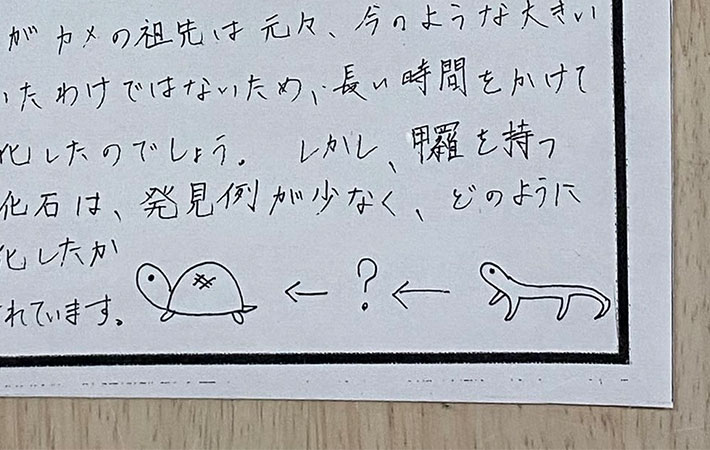 がカメの祖先は元々、今のような大きい
いたわけではないため、長い時間をかけて
化したのでしょう。しかし、甲羅を持つ
化石は、発見例が少なく、どのように
化したか
れています。
?